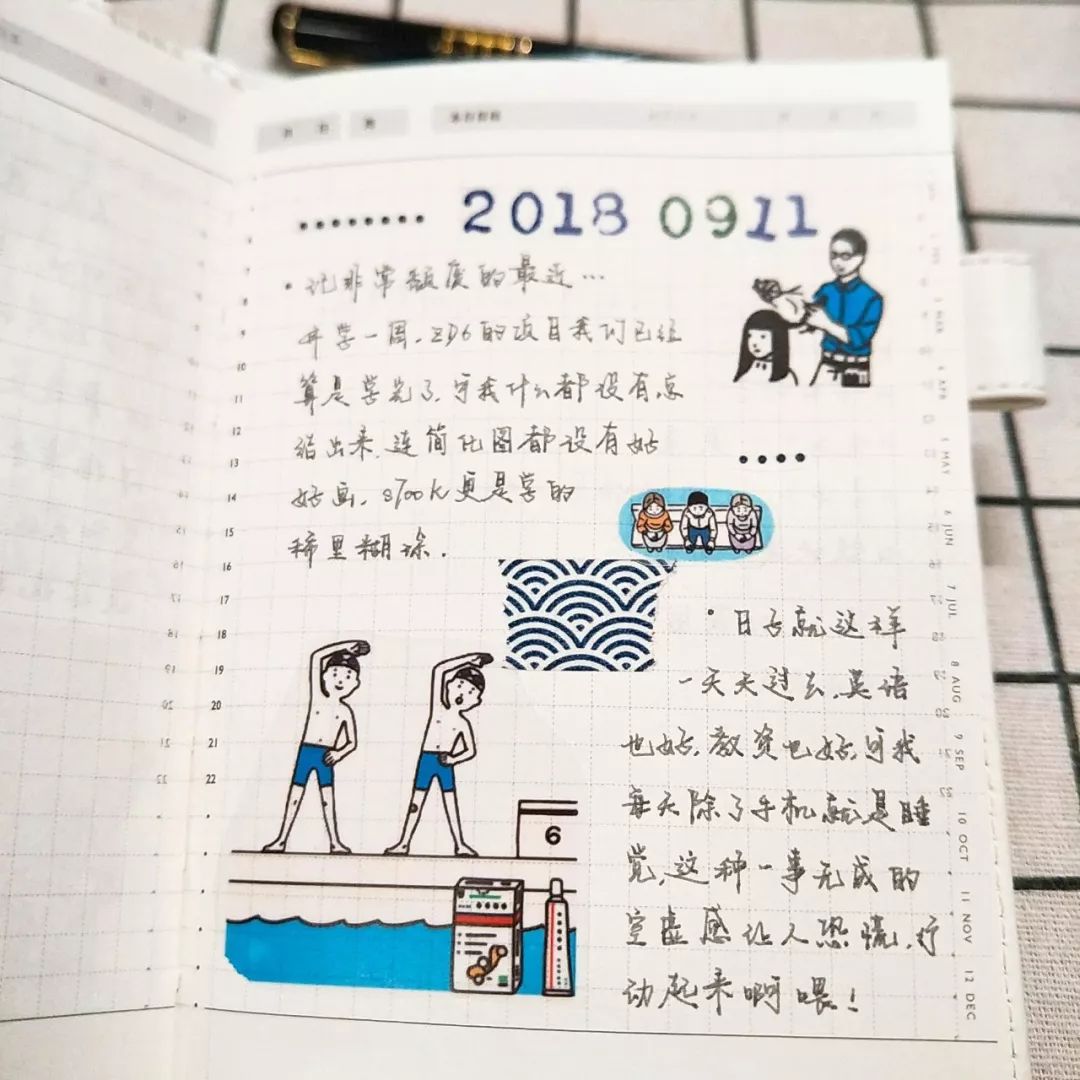 2018 0911
·记非常颓废的最近…
开学一周,ZD6的项目我们已经
算是学完了,可我什么都没有总
结出来,连简化图都没有好
好画,S700K更是学的
稀里糊涂.
·日子就这样
一天天过去,英语
也好,教资也好,可我
每天除了手机就是睡
觉,这种一事无成的
空虚感让人恐慌,行
动起来啊喂!
6
7
8
9
10
11
12
13
14
15
16
17
18
19
20
21
22
6
3 MAR
4 APR
5 MAY
6 JUN
7 JUL
8 AUG
9 SEP
10 OCT
11 NOV
12 DEC